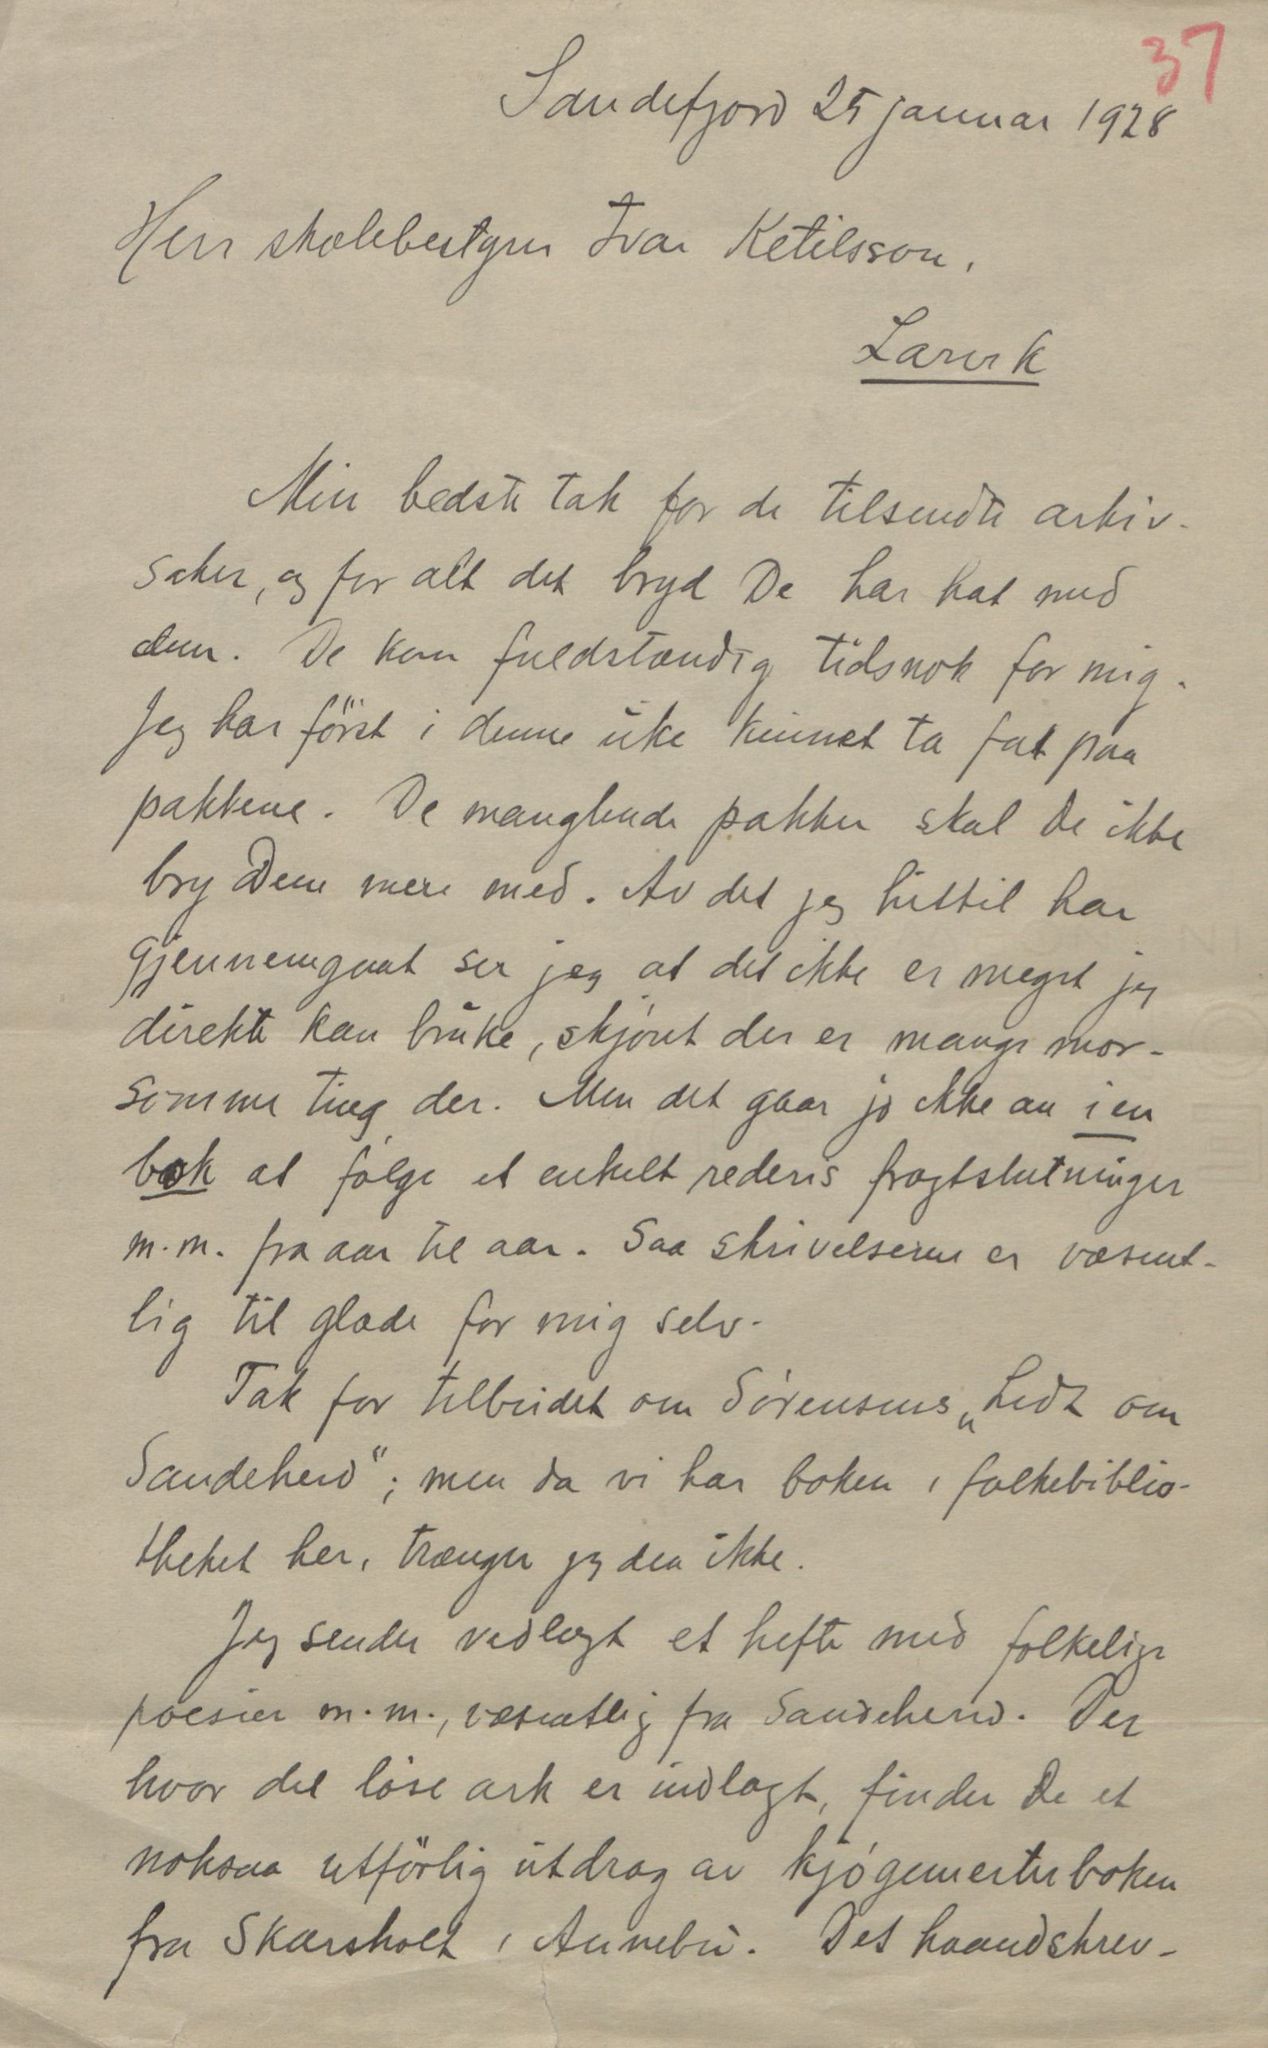 37
Sandefjord 25 januar 1928
Herr skolebestyrer Ivar Ketilsson.
Larvik
Min bedste tak for de tilsendte arkiv-
saker, og for alt det bryd De har hat med
dem. De kom fuldstændig tidsnok for mig.
Jeg har först i denne uke kunnet ta fat paa
pakkene. De manglende pakker skal De ikke
bry Dem mere med. Av det jeg hittil har
gjennemgaat ser jeg at det ikke er meget jeg
direkte kan bruke, skjönt der er mange mor-
somme ting der. Men det gaar jo ikke an i en
bok at fölge et enkelt rederis fragtslutninger
m.m. fra aar til aar. Saa skrivelserne er væsent-
lig til glæde for mig selv.
Tak for tilbudet om Sörensens „Lidt om
Sandeherd“; men da vi har boken i folkebiblio-
theket her, trænger jeg den ikke.
Jeg sender vedlagt et hefte med folkelige
poesier m.m., væsentlig fra Sandeherd. Der
hvor det löse ark er indlagt, finder De et
noksaa utförlig utdrag av kjögemesterboken
fra Skarsholt i Annebu. Det haandskrev-